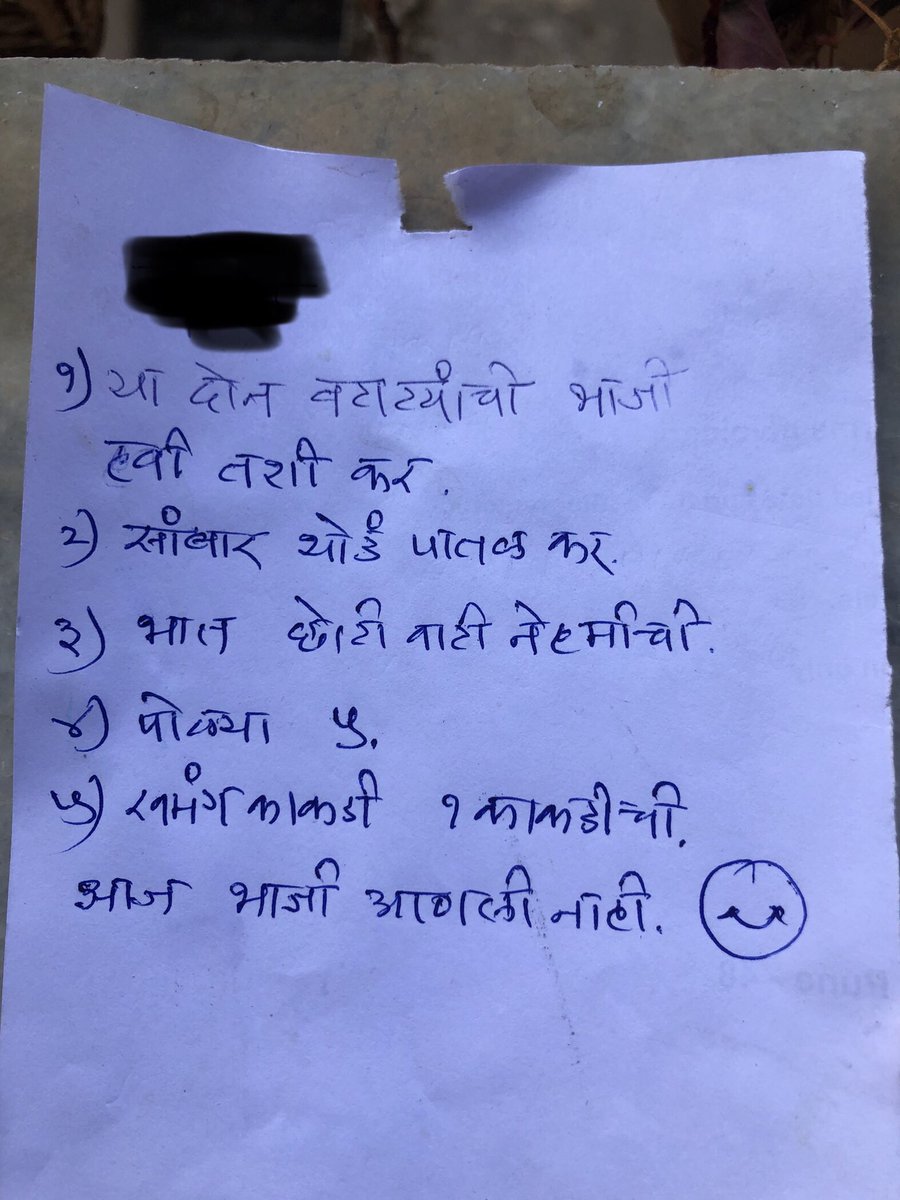 १) या दोन बटाट्यांची भाजी
हवी तशी कर.
२) सांबार थोडं पातळ कर.
३) भात छोटी वाटी नेहमीची.
४) पोळ्या ५.
५) खमंग काकडी १ काकडीची.
आज भाजी आणली नाही.